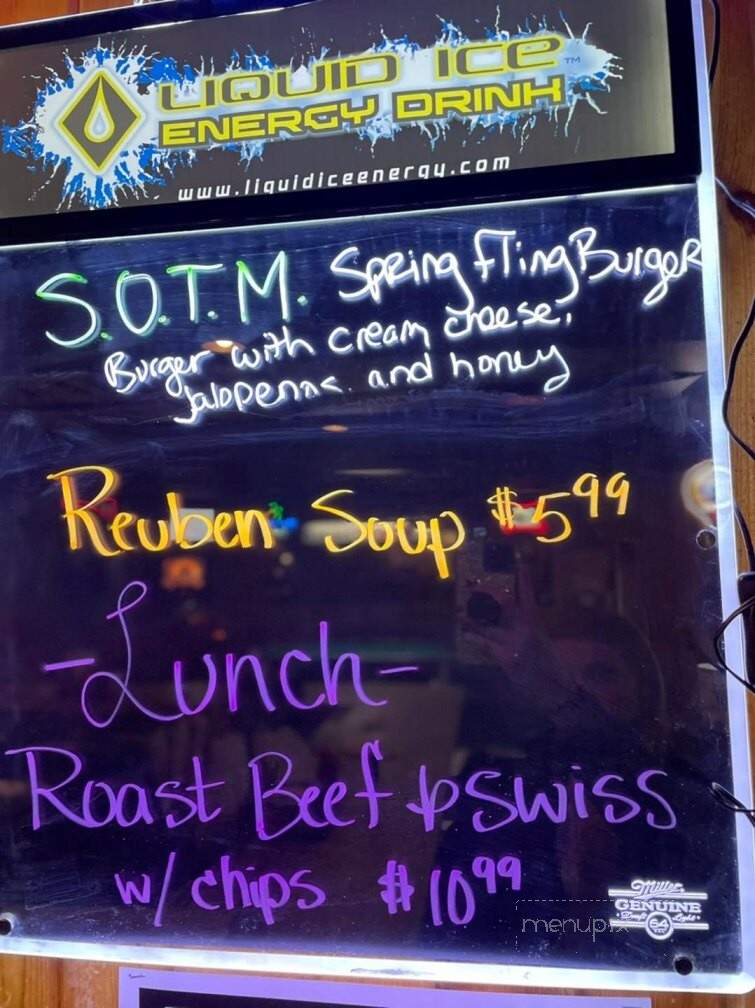 LIQUID ICE™
ENERGY DRINK
www.liquidiceenergy.com
S.O.T.M. Spring Fling Burger
Burger with cream cheese,
Jalopenos and honey
Reuben Soup $5.99
-Lunch-
Roast Beef & Swiss
w/ chips $10.99
Miller
GENUINE
Draft Light
64
menupix